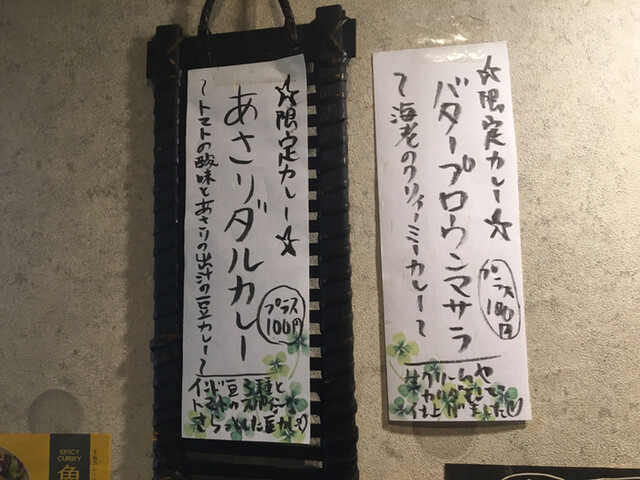 ☆限定カレー☆
バタープロウンマサラ
〜海老のクリィーミーカレー〜
プラス
100円
生クリームや
バターで
仕上げました♡
☆限定カレー☆
あさりダルカレー
〜トマトの酸味とあさりの出汁の豆カレー〜
プラス
100円
インド豆3種と
トマトの
さらっとした豆カレー♡
SPICY
CURRY
魚